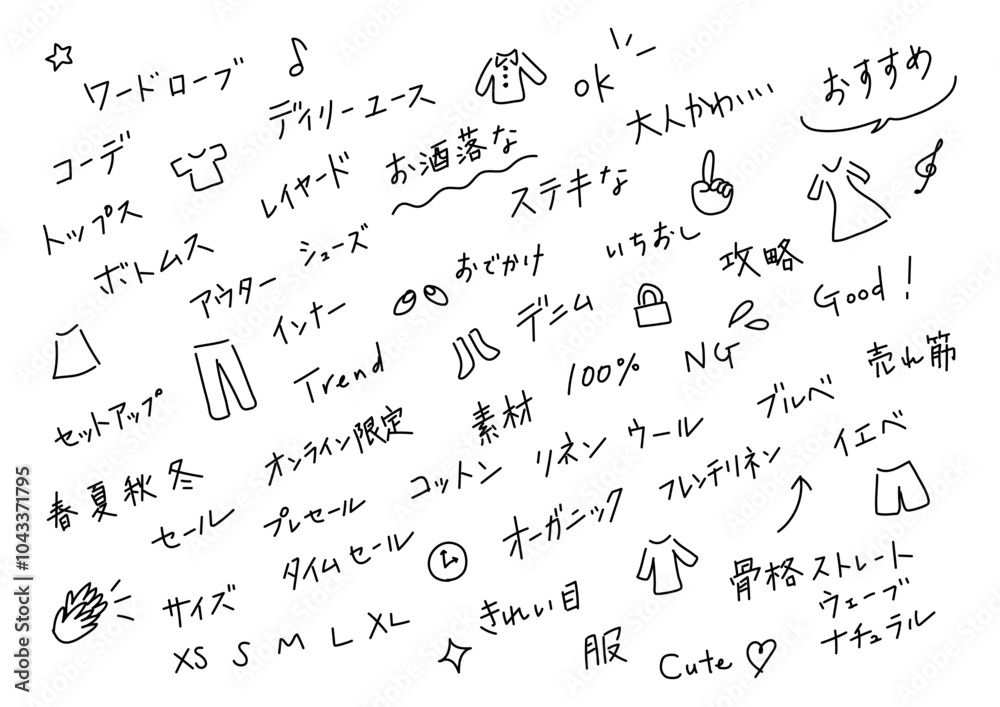 ワードローブ
デイリーユース
ok
大人かわいい
おすすめ
コーデ
レイヤード
お洒落な
ステキな
トップス
ボトムス
シューズ
アウター
インナー
おでかけ
いちおし
攻略
デニム
Good!
Trend
100%
NG
売れ筋
セットアップ
オンライン限定
素材
ブルベ
イエベ
春夏秋冬
コットン
リネン
ウール
フレンチリネン
セール
プレセール
タイムセール
オーガニック
サイズ
XS S M L XL
きれい目
骨格ストレート
ウェーブ
ナチュラル
服
Cute
Adobe Stock | #1043371795